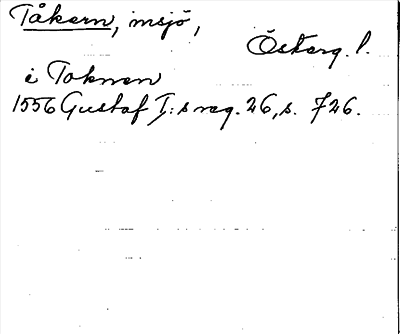 Tåkern, insjö,
Österg. l.
i Toknen
1556 Gustaf I:s reg. 26, s. 726.